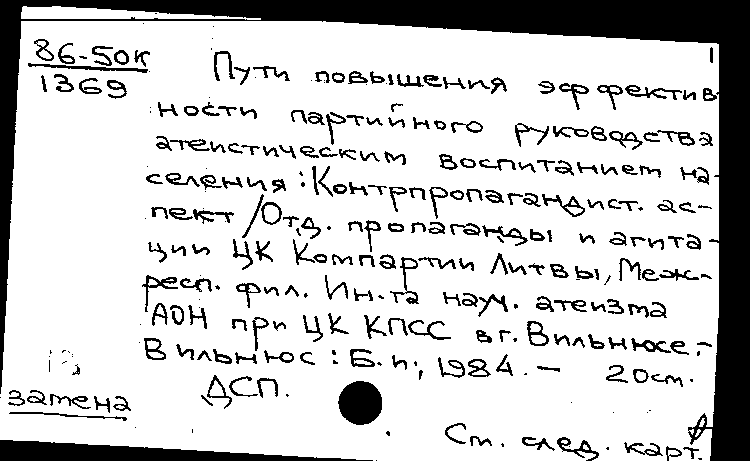 86-50к
1369
1
Пути повышения эффектив-
ности партийного руководства
атеистическим воспитанием на-
селения: Контрпропагандист. ас-
пект / Отд. пропаганды и агита-
ции ЦК Компартии Литвы, Меж-
респ. фил. Ин-та науч. атеизма
АОН при ЦК КПСС в г. Вильнюсе. -
Вильнюс: Б.и., 1984. — 20см.
ДСП.
замена
См. след. карт.